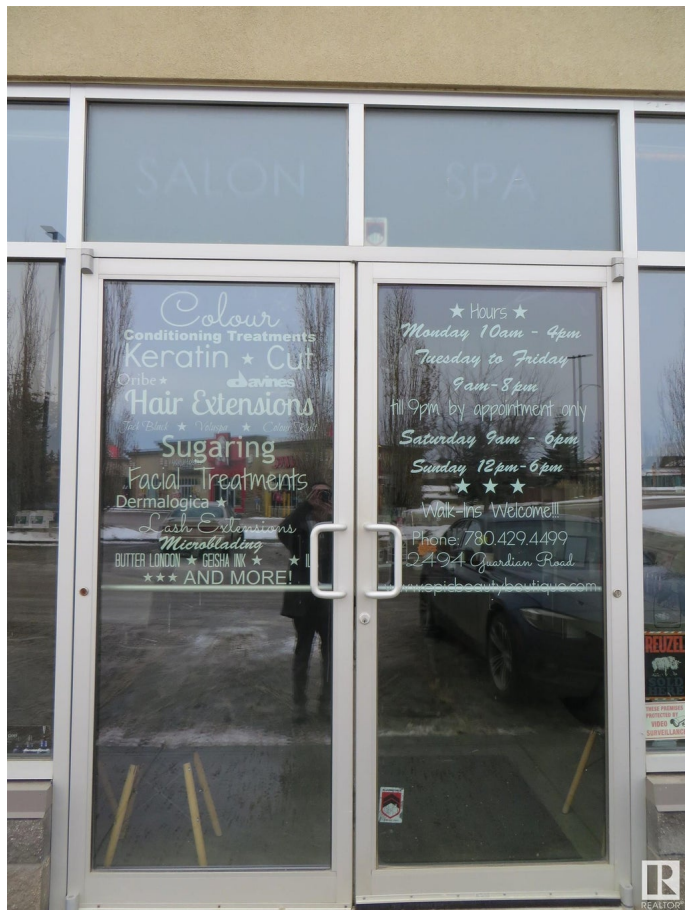 SALON SPA
Colour
Conditioning Treatments
Keratin ★ Cut
Oribe ★ davines
Hair Extensions
Sugaring
Facial Treatments
Dermalogica ★
Lash Extensions
Microblading
BUTTER LONDON ★ GEISHA INK ★ ★
★★★ AND MORE!
★ Hours ★
Monday 10am - 4pm
Tuesday to Friday
9am-8pm
till 9pm by appointment only
Saturday 9am - 6pm
Sunday 12pm-6pm
★ ★ ★
Walk-Ins Welcome!!!
Phone: 780.429.4499
2494 Guardian Road
www.epicbeautyboutique.com
REUZEL
SOLD
HERE
THESE PREMISES
PROTECTED BY
VIDEO
SURVEILLANCE
REALTOR